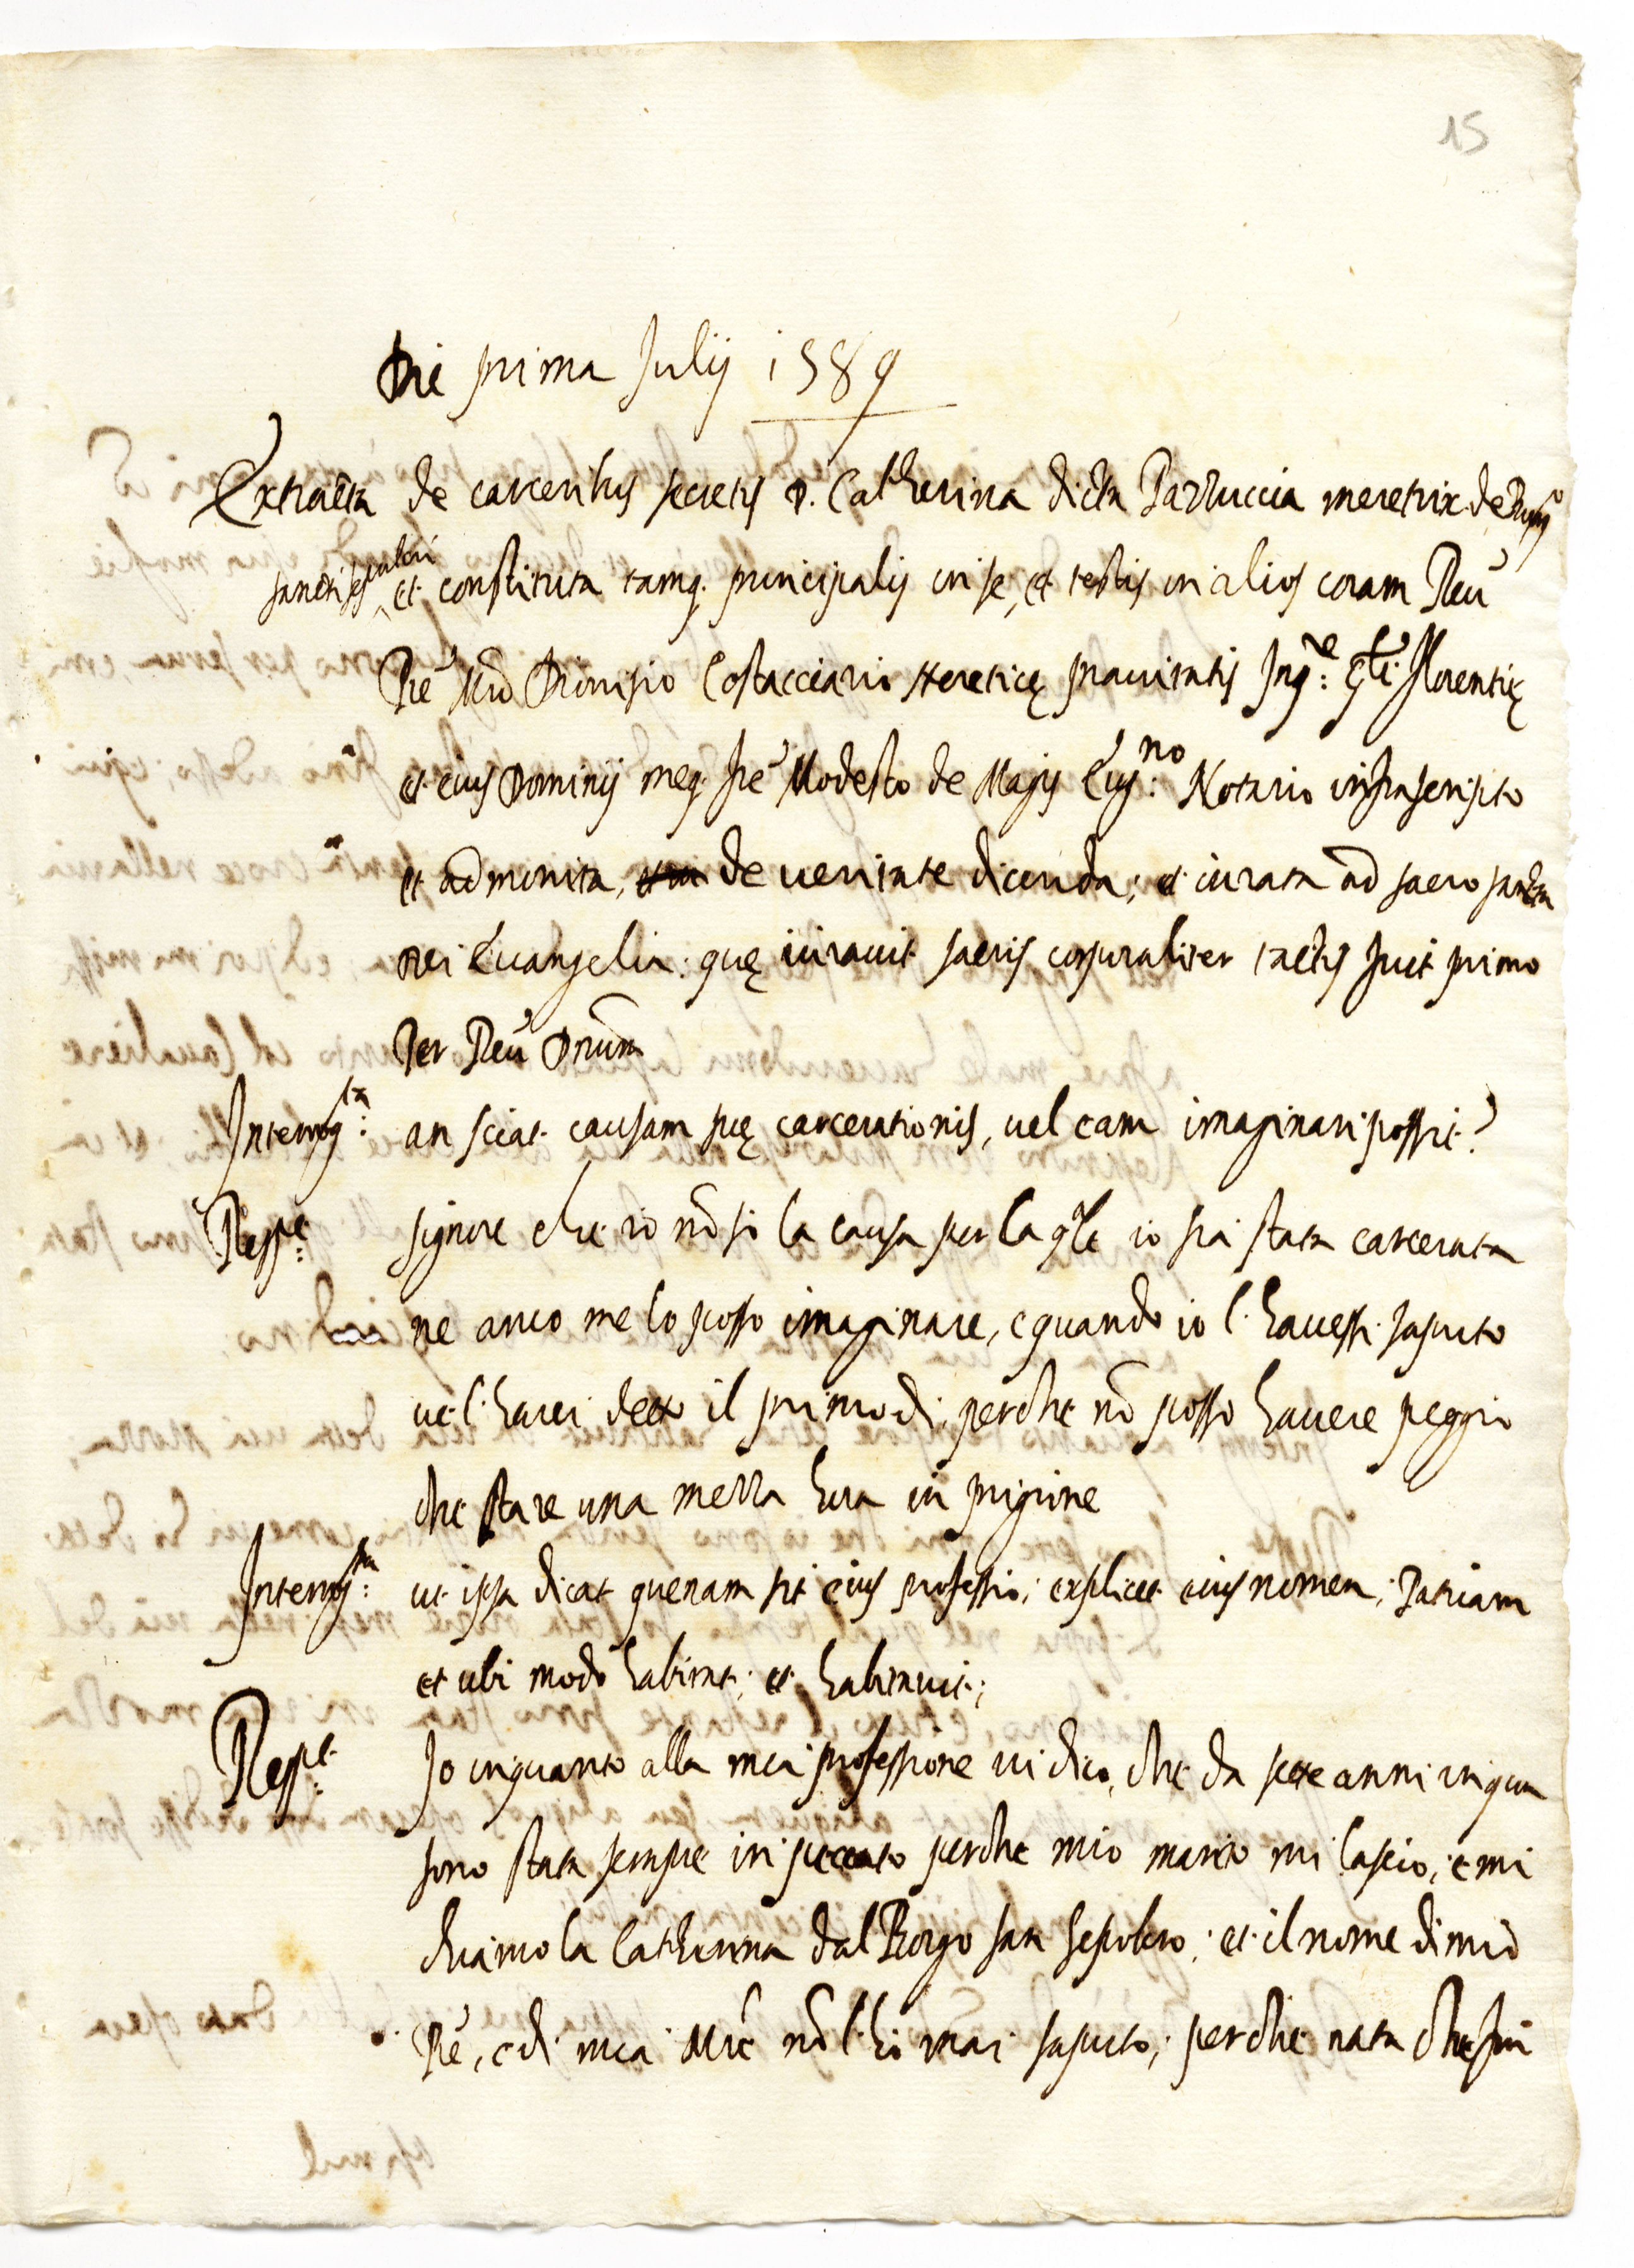 15
Die prima Julij 1589
Extracta de carceribus secretis D. Catherina dicta Pazzuccia meretrix de Burgo
sancti sepulcri et constituta tamq. principalis in se, et testis in alios coram Reu
Pre Mro Dionisio Costacciario Hereticę prauitatis Inq.re Gnli Florentię
et eius Dominij meq. fre Modesto de Magis Eug.no Notario infrascripto
et admonita, de ueritate dicenda, et iurata ad sacro sancta
Dei Euangelia: quę iurauit sacris corporaliter tactis fuit primo
Per Reu Dnum
Interrog.ta an sciat causam suę carcerationis, uel eam imaginari possit?
Resp.t signore che io nō so la causa per la qle io sia stata carcerata
ne anco me lo posso imaginare, e quando io l'hauessi saputo
ue l'harei detto il primo di, perche nō posso hauere peggio
che stare una mezza hora in prigione
Interrog.ta ut ipsa dicat quenam sit eius professio, explicet eius nomen, Patriam
et ubi modo habitat, et habitauit;
Resp.t Io inquanto alla mia professione ui dico, che da sette anni in qua
sono stata sempre in peccato perche mio marito mi lascio, e mi
chiamo la Catherina dal Borgo san Sepolcro, et il nome di mio
Pre, e di mia Mre nō l'ho mai saputo, perche nata che fui